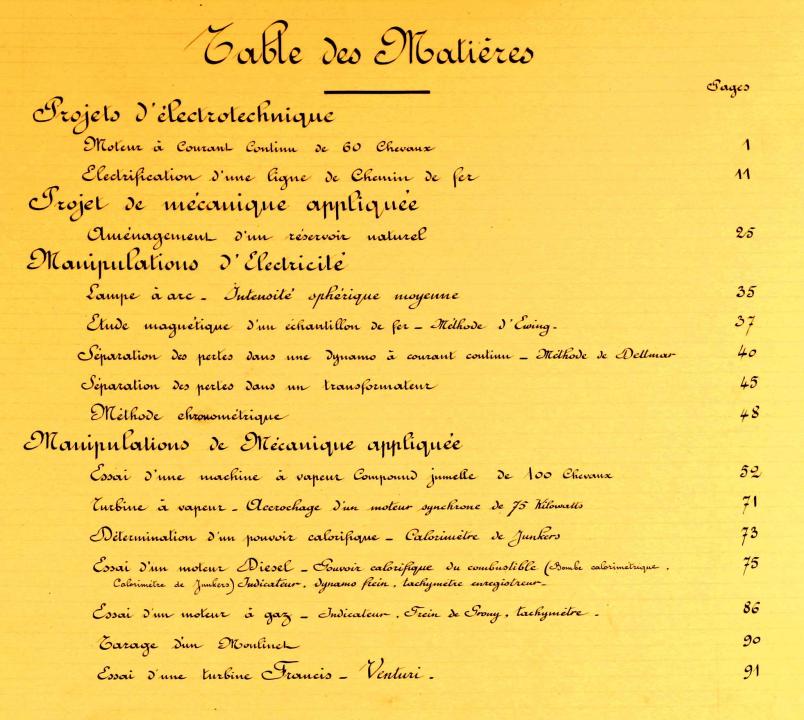 Table des Matières
Pages
Projets d'électrotechnique
Moteur à Courant Continu de 60 Chevaux 1
Electrification d'une ligne de Chemin de fer 11
Projet de mécanique appliquée
Aménagement d'un réservoir naturel 25
Manipulations d'Electricité
Lampe à arc - Intensité sphérique moyenne 35
Etude magnétique d'un échantillon de fer - Méthode d'Ewing. 37
Séparation des pertes dans une dynamo à courant continu - Méthode de Dettmar 40
Séparation des pertes dans un transformateur 45
Méthode chronométrique 48
Manipulations de Mécanique appliquée
Essai d'une machine à vapeur Compound jumelle de 100 Chevaux 52
Turbine à vapeur - Accrochage d'un moteur synchrone de 75 Kilowatts 71
Détermination d'un pouvoir calorifique - Calorimètre de Junkers 73
Essai d'un moteur Diesel - Pouvoir calorifique du combustible (Bombe calorimétrique, 75
Calorimètre de Junkers) Indicateur, dynamo frein, tachymetre enregistreur-
Essai d'un moteur à gaz - Indicateur, Frein de Prony, tachymètre - 86
Tarage d'un Moulinet 90
Essai d'une turbine Francis - Venturi - 91